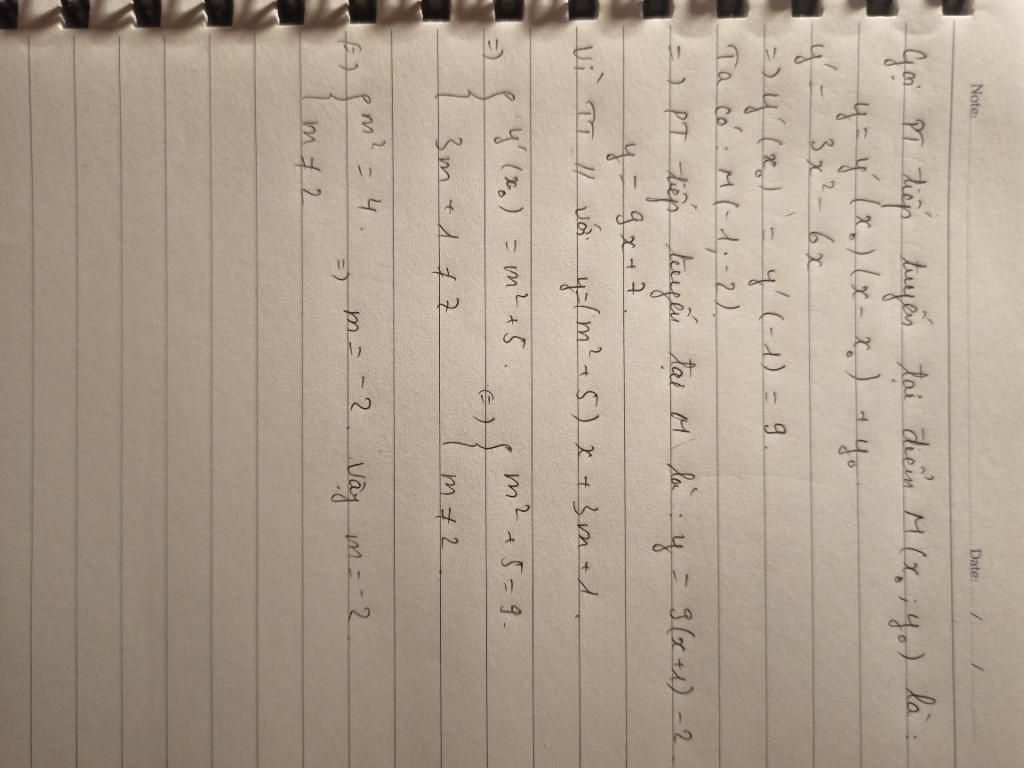 Note:
Date: / /
Gọi PT tiếp tuyến tại điểm M(x₀; y₀) là:
y = y'(x₀)(x - x₀) + y₀
y' = 3x² - 6x
=) y'(x₀) = y'(-1) = 9.
Ta có: M(-1; -2)
=) PT tiếp tuyến tại M là: y = 9(x+1) - 2
y = 9x+7.
Vì TT // với y=(m²+5)x + 3m+1.
=) { y'(x₀) = m²+5. (=) { m²+5=9.
3m+1 ≠ 7 m ≠ 2.
(=) { m² = 4. =) m = -2. Vậy m = -2
m ≠ 2